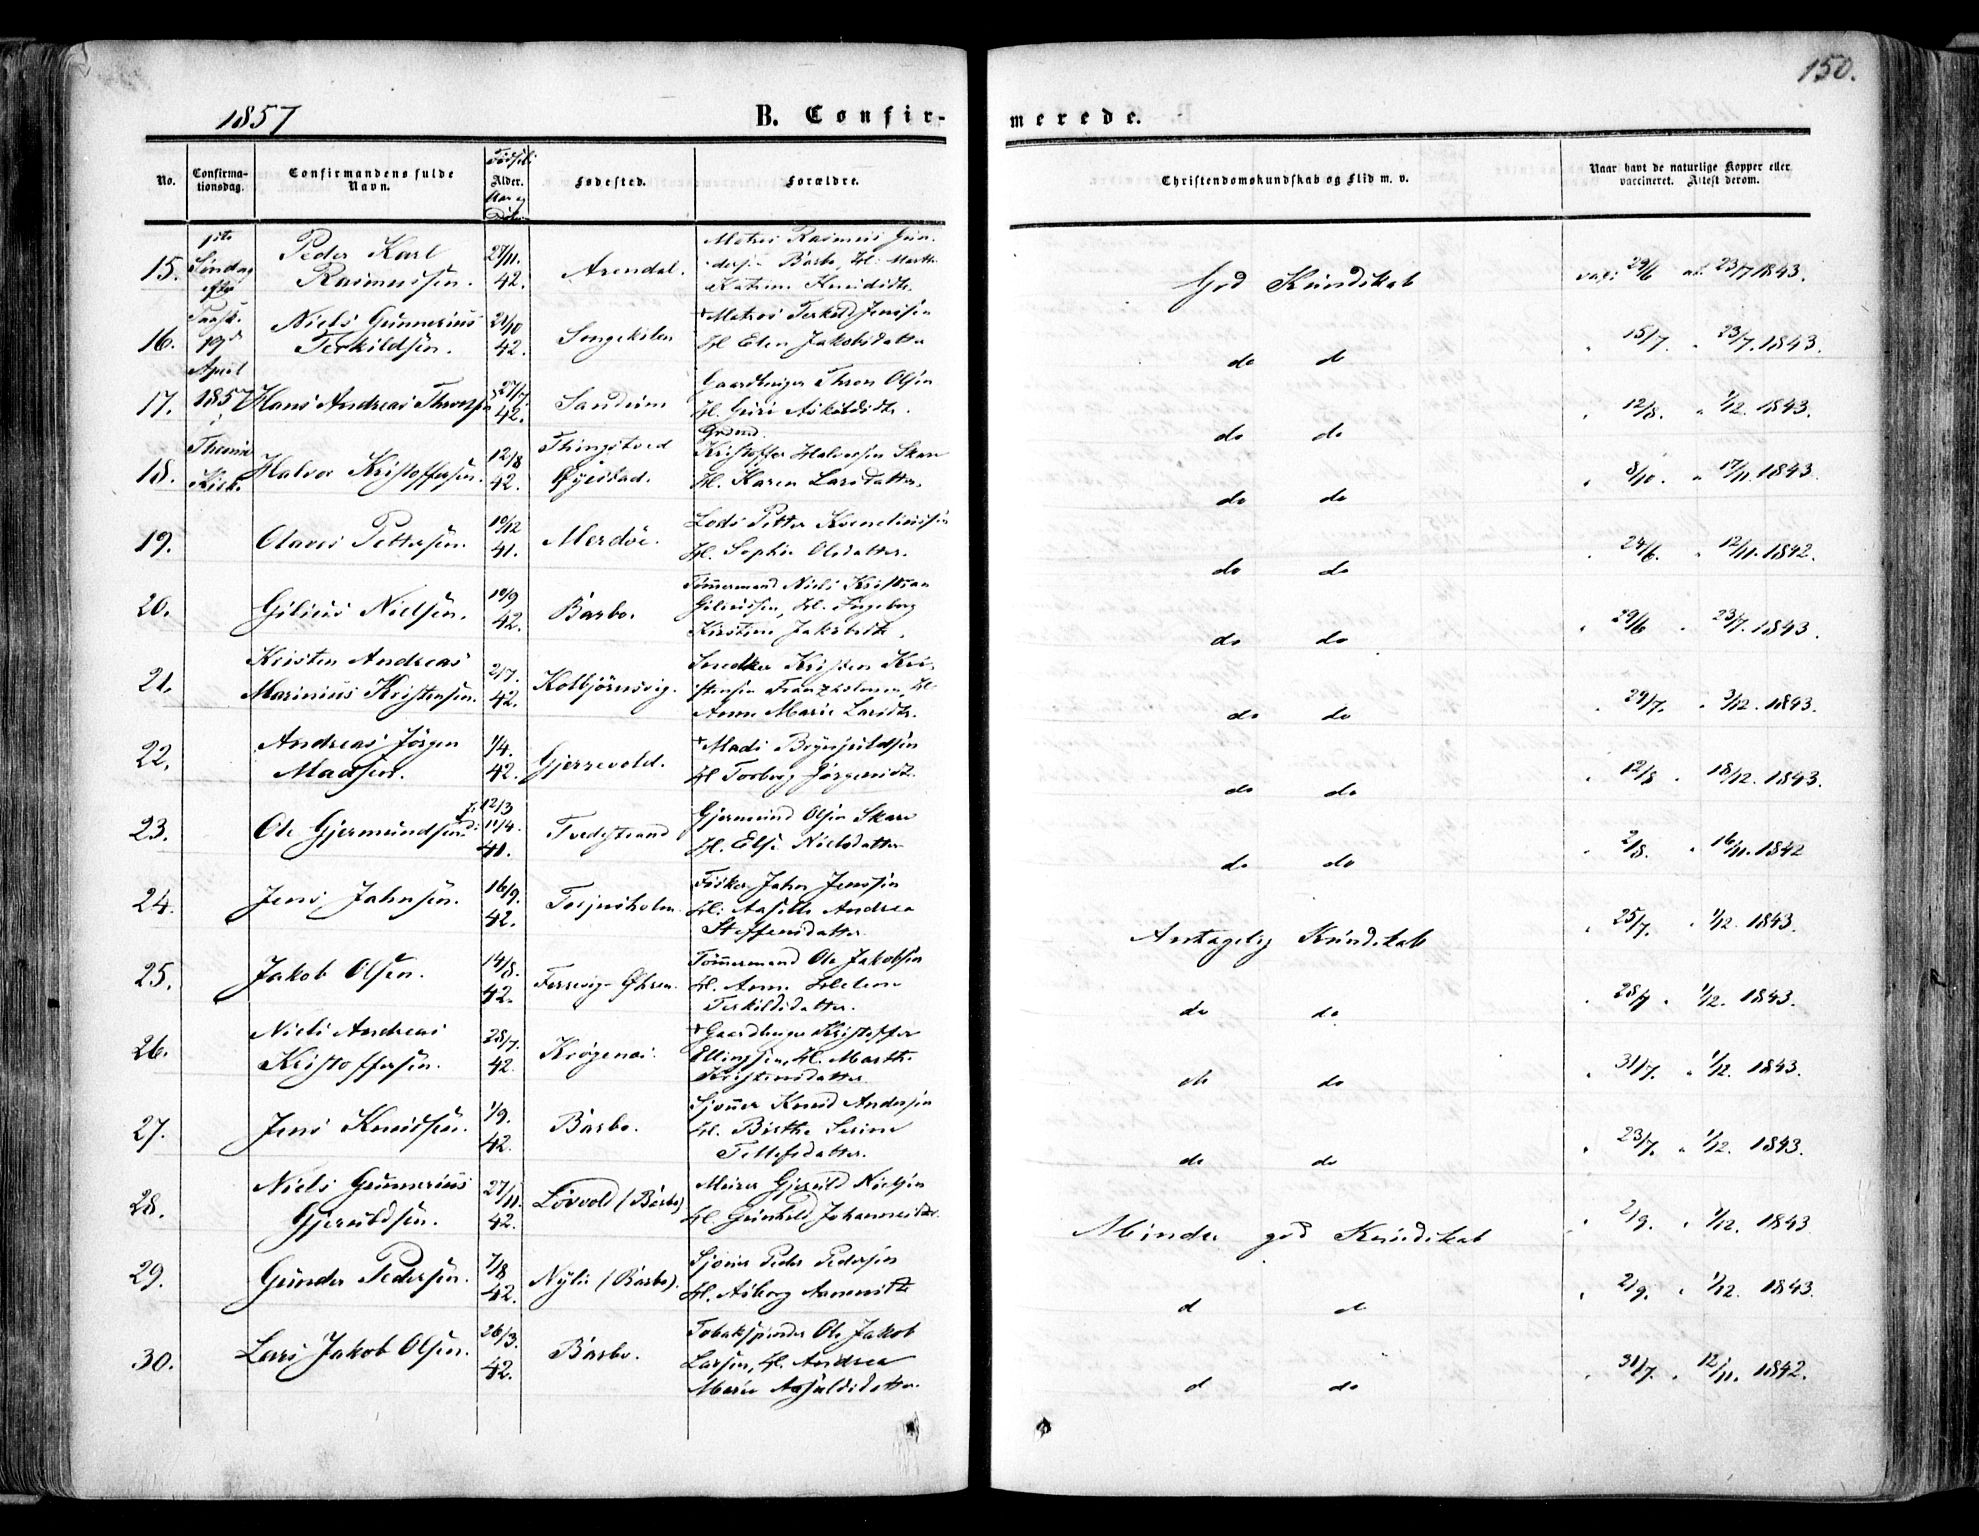 150.
1857
B. Confir-
merede.
No.
Confirma-
tionsdag.
Confirmandens fulde
Navn.
Fødsels
Alder.
Aar og
Datum
Fødested.
Forældre.
Christendomskundskab og Flid m. v.
Naar havt de naturlige Kopper eller
vaccineret. Attest derom.
1ste
Søndag
efter
Paask.
19d
April
1857
i
Throms
Kirke.
15.
Peder Karl
Rasmussen.
27/11.
42.
Arendal.
Matros Rasmus Gun-
dersen Barbo, H. Marthe
Katrine Knudsdtr.
God Kundskab
vac: 29/6 att. 23/7 1843.
16.
Niels Gunnerius
Terkildsen.
21/10
42.
Songekilen
+Matros Terkild Jenssen
H. Elen Jakobsdatter
do do
15/7. 23/7. 1843.
17.
Hans Andreas Thronsen
27/7.
42.
Sandum
Gaardbruger Thron Olsen
H. Guri Askildsdtr.
do do
12/8. 1/12. 1843.
18.
Halvor Kristoffersen.
12/8
42.
Thingstved
Øyestad.
Grdmd.
Kristoffer Halvorsen Skare
H. Karen Larsdatter.
do do
8/10. 17/11. 1843.
19.
Olaves Pettersen.
10/12
41.
Merdöe.
Lods Petter Korneliussen
H. Sophie Olsdatter.
do do
24/6. 12/11. 1842.
20.
Gilius Nielsen.
10/9
42.
Barbo.
Tömmermand Niels Kristian
Giliussen, H. Ingeborg
Kirstine Jakobsdtr.
do do
29/6 23/7. 1843.
21.
Kristen Andreas
Marinius Kristensen.
2/7.
42.
Kolbjörnsvig.
Snedker Kristen Kri-
stensen Franzholmen, H.
Anne Marie Larsdtr.
do do
29/7. 3/12. 1843.
22.
Andreas Jörgen
Madsen.
1/4.
42.
Gjerrevold.
+Mads Brynjuldsen
H Torborg Jörgensdtr.
do do
12/8 18/12. 1843.
23.
Ole Gjermundsen
f. 12/3
d: 11/4.
41.
Tvedestrand
Gjermund Olsen Skare
H. Else Nielsdatter
do do
2/8. 16/11. 1842
24.
Jens Jahnsen.
16/9.
42.
Torjusholm.
Fisker Jahn Jenssen
H: Aasille Andrea
Steffensdatter.
Antagelig Kundskab
25/7. 1/12. 1843.
25.
Jakob Olsen.
14/8.
42.
Færvig-Öhren.
Tömmermand Ole Jakobsen
H. Anne Helene
Terkildsdatter.
do do
28/7. 1/12. 1843.
26.
Niels Andreas
Kristoffersen.
28/7.
42.
Krögenæs.
+Gaardbruger Kristoffer
Ellingsen, H. Marthe
Kristensdatter.
do do
31/7. 1/12. 1843.
27.
Jens Knudsen.
1/9.
42.
Barbo.
Sjömer Knud Andersen
H. Birthe Serine
Tellefsdatter.
do do
23/7. 1/12. 1843.
28.
Niels Gunnerius
Gjeruldsen.
27/11.
42.
Lövvold (Barbo)
Murer Gjeruld Nielsen
H. Gunhild Johannesdtr.
Minder god Kundskab
2/9. 1/12. 1843
29.
Gunder Pedersen.
7/8
42.
Nylie (Barbo).
Sjömer Peder Pedersen
H. Asborg Aanonsdtr
d d
2/9. 1/12. 1843.
30.
Lars Jakob Olsen.
26/3.
42.
Barbo.
Tobakspinder Ole Jakob
Larsen, H. Andrea
Marie Asfuldsdatter.
d do
31/7. 12/11. 1842.